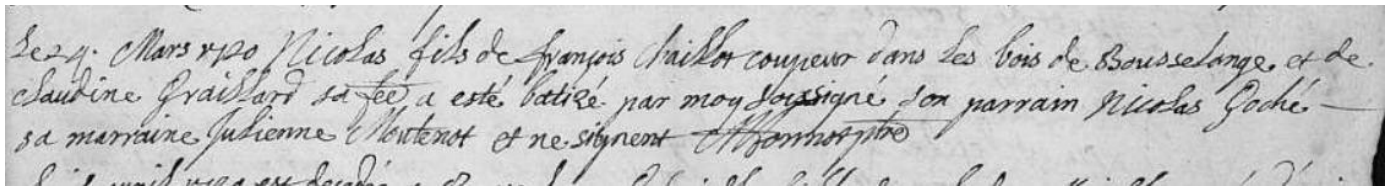 Le 24. Mars 1720 Nicolas fils de françois Chaillot coupeur dans les bois de Bousselange, et de
claudine Graillard sa fee, a esté batizé par moy soussigné son parrain Nicolas Goché
sa marraine Julienne Moutenot et ne signent